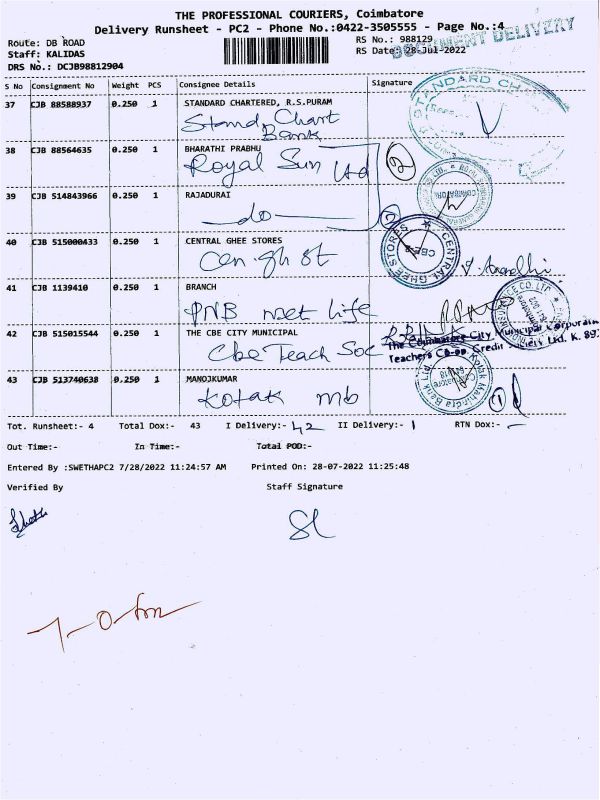 THE PROFESSIONAL COURIERS, Coimbatore
Delivery Runsheet - PC2 - Phone No.:0422-3505555 - Page No.:4
DOCUMENT DELIVERY
Route: DB ROAD RS No.: 988129
Staff: KALIDAS RS Date: 28-Jul-2022
DRS No.: DCJB98812904
S No Consignment No Weight PCS Consignee Details Signature
37 CJB 88588937 0.250 1 STANDARD CHARTERED, R.S.PURAM
Stand Chart
Bank
38 CJB 88564635 0.250 1 BHARATHI PRABHU
Royal Sun Ltd
2
39 CJB 514843966 0.250 1 RAJADURAI
do
40 CJB 515000433 0.250 1 CENTRAL GHEE STORES
Cen gh St
CENTRAL GHEE STORES
CBE-2
41 CJB 1139410 0.250 1 BRANCH
PNB met life
42 CJB 515015544 0.250 1 THE CBE CITY MUNICIPAL
The Coimbatore City Municipal Corporation
Teachers Co-op. Credit Society Ltd. K. 89
Cbe Teach Soc
43 CJB 513740638 0.250 1 MANOJKUMAR
Kotak mb
Kotak Mahindra Bank Ltd
Coimbatore
1
Tot. Runsheet:- 4 Total Dox:- 43 I Delivery:- 42 II Delivery:- 1 RTN Dox:- -
Out Time:- In Time:- Total POD:-
Entered By :SWETHAPC2 7/28/2022 11:24:57 AM Printed On: 28-07-2022 11:25:48
Verified By Staff Signature